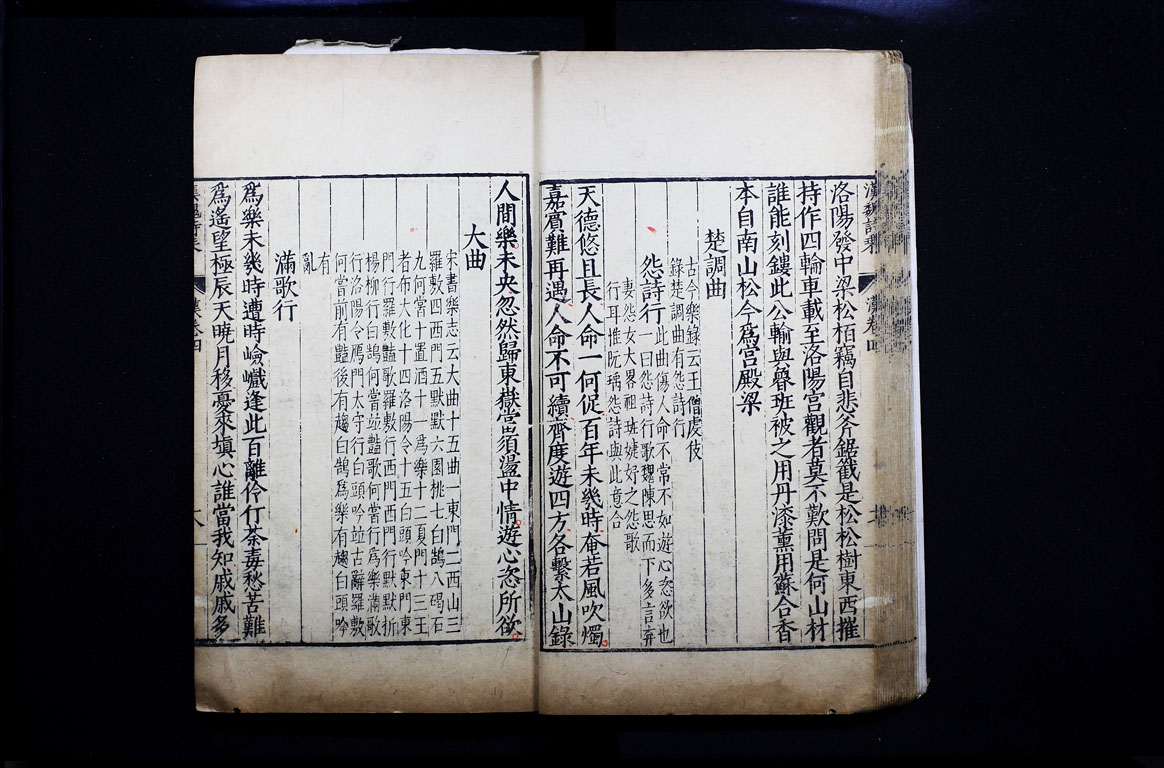 洛陽發中梁松栢竊自悲斧鋸截是松松樹東西摧
持作四輪車載至洛陽宫觀者莫不歎問是何山材
誰能刻鏤此公輸與魯班被之用丹漆薰用蘇合香
本自南山松今爲宫殿梁
楚調曲
古今樂錄云王僧虔伎
錄楚調曲有怨詩行
怨詩行
一曰怨詩行歌魏陳思而下多言弃
此曲傷人命不常不如遊心恣欲也
妻怨女大畧祖班婕妤之怨歌
行耳推阮瑀怨詩與此意合
天德悠且長人命一何促百年未幾時奄若風吹燭
嘉賓難再遇人命不可續齊度遊四方各繫太山錄
人間樂未央忽然歸東嶽當須盪中情遊心恣所欲
大曲
宋書樂志云大曲十五曲一東門二西山三
羅敷四西門五默默六園桃七白鵠八碣石
九何甞十置酒十一爲樂十二夏門十三王
者布大化十四洛陽令十五白頭吟東門東
門行羅敷豔歌羅敷行西門西門行默默折
楊柳行白鵠何甞竝豔歌何甞行爲樂滿歌
行洛陽令鴈門太守行白頭吟竝古辭羅敷
何甞前有豔後有趨白鵠爲樂有趨白頭吟
有
亂
滿歌行
爲樂未幾時遭時嶮巇逢此百離伶仃荼毒愁苦難
爲遙望極辰天曉月移憂來塡心誰當我知戚戚多
漢魏詩乘
漢卷四